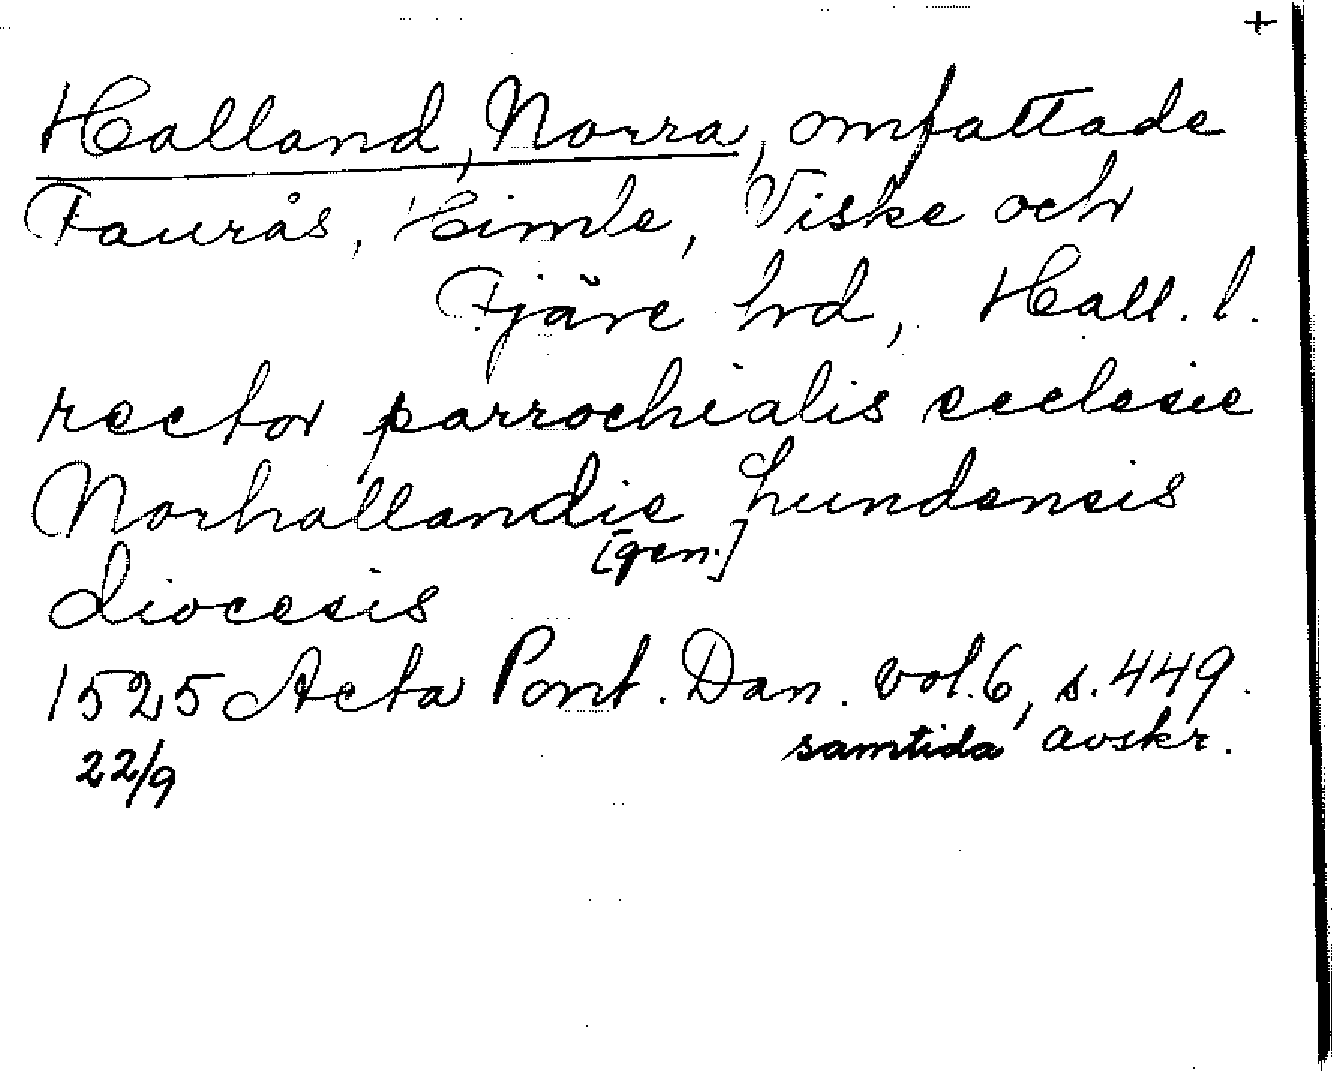 +
Halland, Norra, omfattade
Faurås, Himle, Viske och
Fjäre hrd, Hall. l.
rector parrochialis ecclesie
Norhallandie Lundensis
[gen.]
diocesis
1525 Acta Pont. Dan. vol. 6, s. 449.
22/9 samtida avskr.